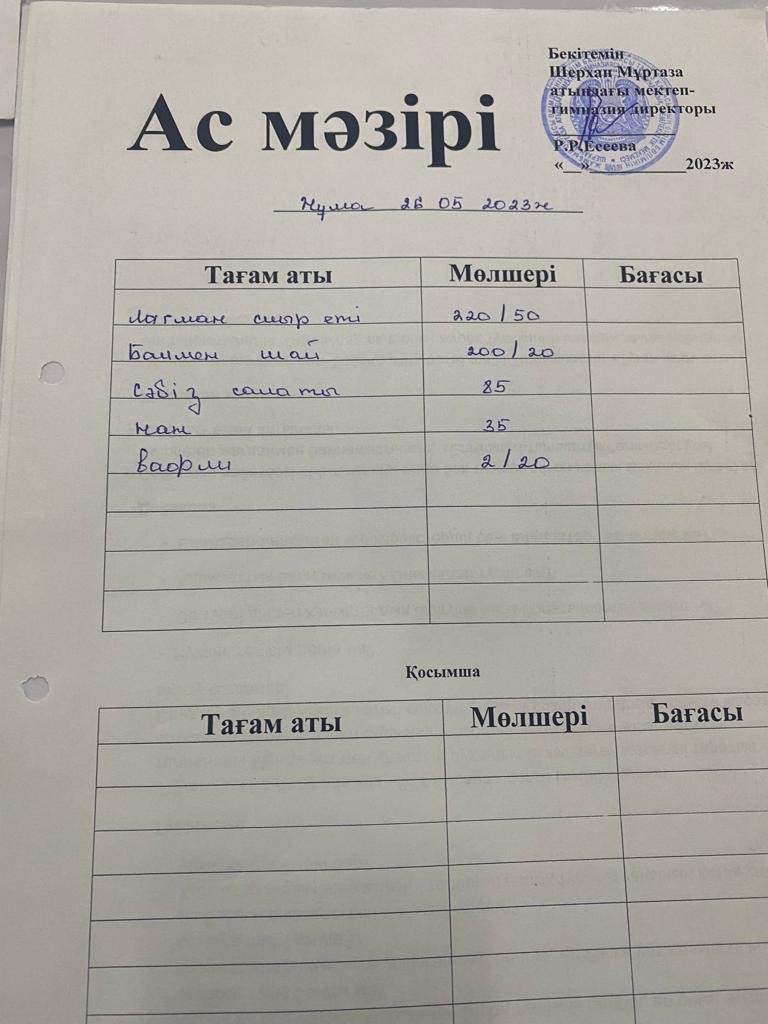 Бекітемін
Шерхан Мұртаза
атындағы мектеп-
гимназия директоры
Р.Р.Есеева
«__»____________2023ж
Ас мәзірі
Жұма 26 05 2023ж
Тағам аты Мөлшері Бағасы
Лағман сиыр еті 220/50
Балмен шай 200/20
Сәбіз салаты 85
нан 35
вафли 2/20
Қосымша
Тағам аты Мөлшері Бағасы